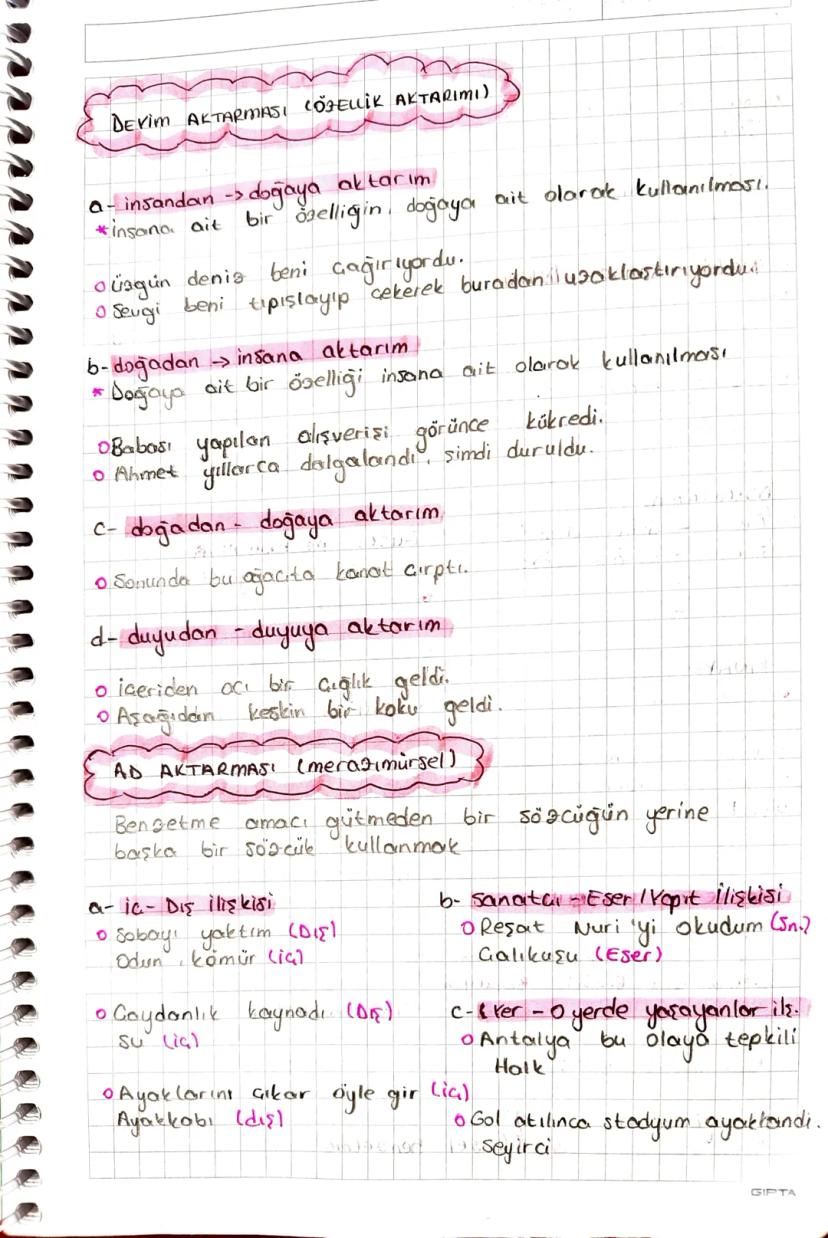 DEYİM AKTARMASI (ÖZELLİK AKTARIMI)
a- insandan -> doğaya aktarım
*insana ait bir özelliğin, doğaya ait olarak kullanılması.
o üzgün deniz beni çağırıyordu.
o Sevgi beni tıpışlayıp çekerek buradan uzaklaştırıyordu.
b- doğadan -> insana aktarım
* Doğaya ait bir özelliği insana ait olarak kullanılması
o Babası yapılan alışverişi görünce kükredi.
o Ahmet yıllarca dalgalandı, şimdi duruldu.
c- doğadan - doğaya aktarım
o Sonunda bu ağaçta kanat çırptı.
d- duyudan - duyuya aktarım
o içeriden acı bir çığlık geldi.
o Aşağıdan keskin bir koku geldi.
AD AKTARMASI (mecazımürsel)
Benzetme amacı gütmeden bir sözcüğün yerine
başka bir sözcük kullanmak
a- iç - Dış ilişkisi
o Sobayı yaktım (Dış)
Odun, kömür (iç)
o Çaydanlık kaynadı (Dış)
su (iç)
o Ayaklarını çıkar öyle gir (iç)
Ayakkabı (dış)
b- Sanatçı - Eser / Yapıt İlişkisi
o Reşat Nuri'yi okudum (Sn.)
Çalıkuşu (Eser)
c- Yer - O yerde yaşayanlar ilş.
o Antalya bu olaya tepkili
Halk
o Gol atılınca stadyum ayaklandı.
seyirci
GIPTA